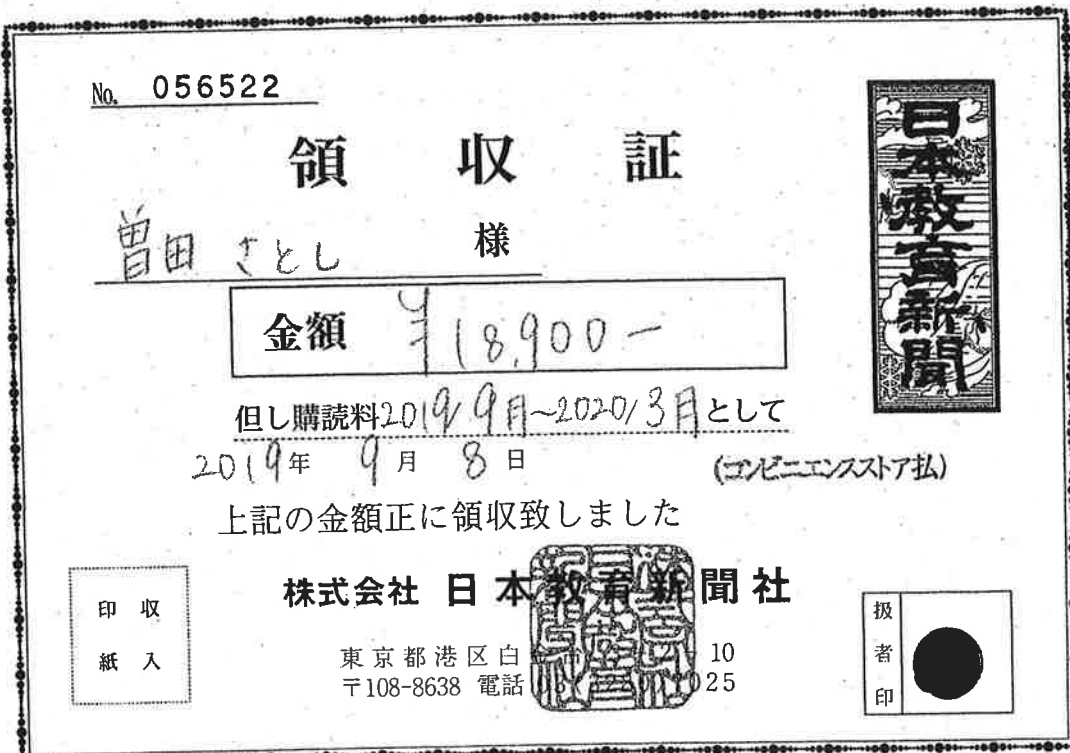 No. 056522
領収証
日本教育新聞
曽田 さとし 様
金額 ¥18,900-
但し購読料2019/9月~2020/3月として
2019年 9月 8日
(コンビニエンスストア払)
上記の金額正に領収致しました
株式会社 日本教育新聞社
東京都港区白 10
〒108-8638 電話 025
収入
印紙
扱者印